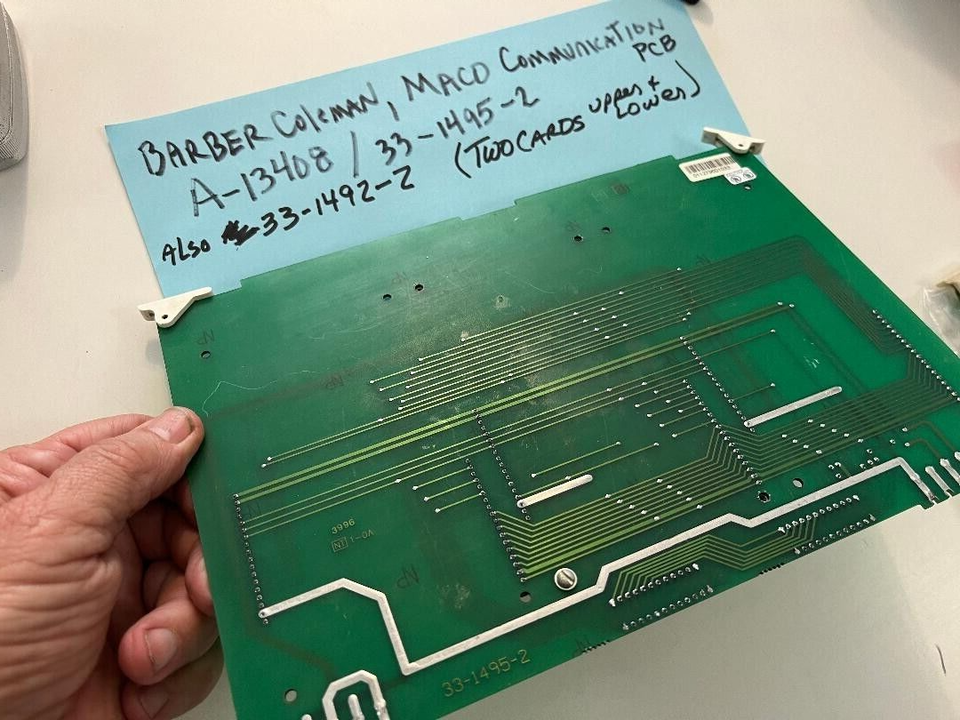 BARBER Coleman, MACO COMMUNICATION PCB
A-13408 / 33-1495-2
(TWO CARDS UPPER & LOWER)
ALSO 33-1492-2
3996
N1 1-0A
33-1495-2
NP
NP
NP